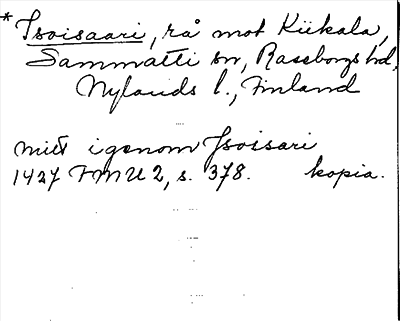 *Isoisaari, rå mot Kiikala,
Sammatti sn, Raseborgs hd,
Nylands l., Finland
mitt igenom Jsoisari
1427 FMU 2, s. 378. kopia.